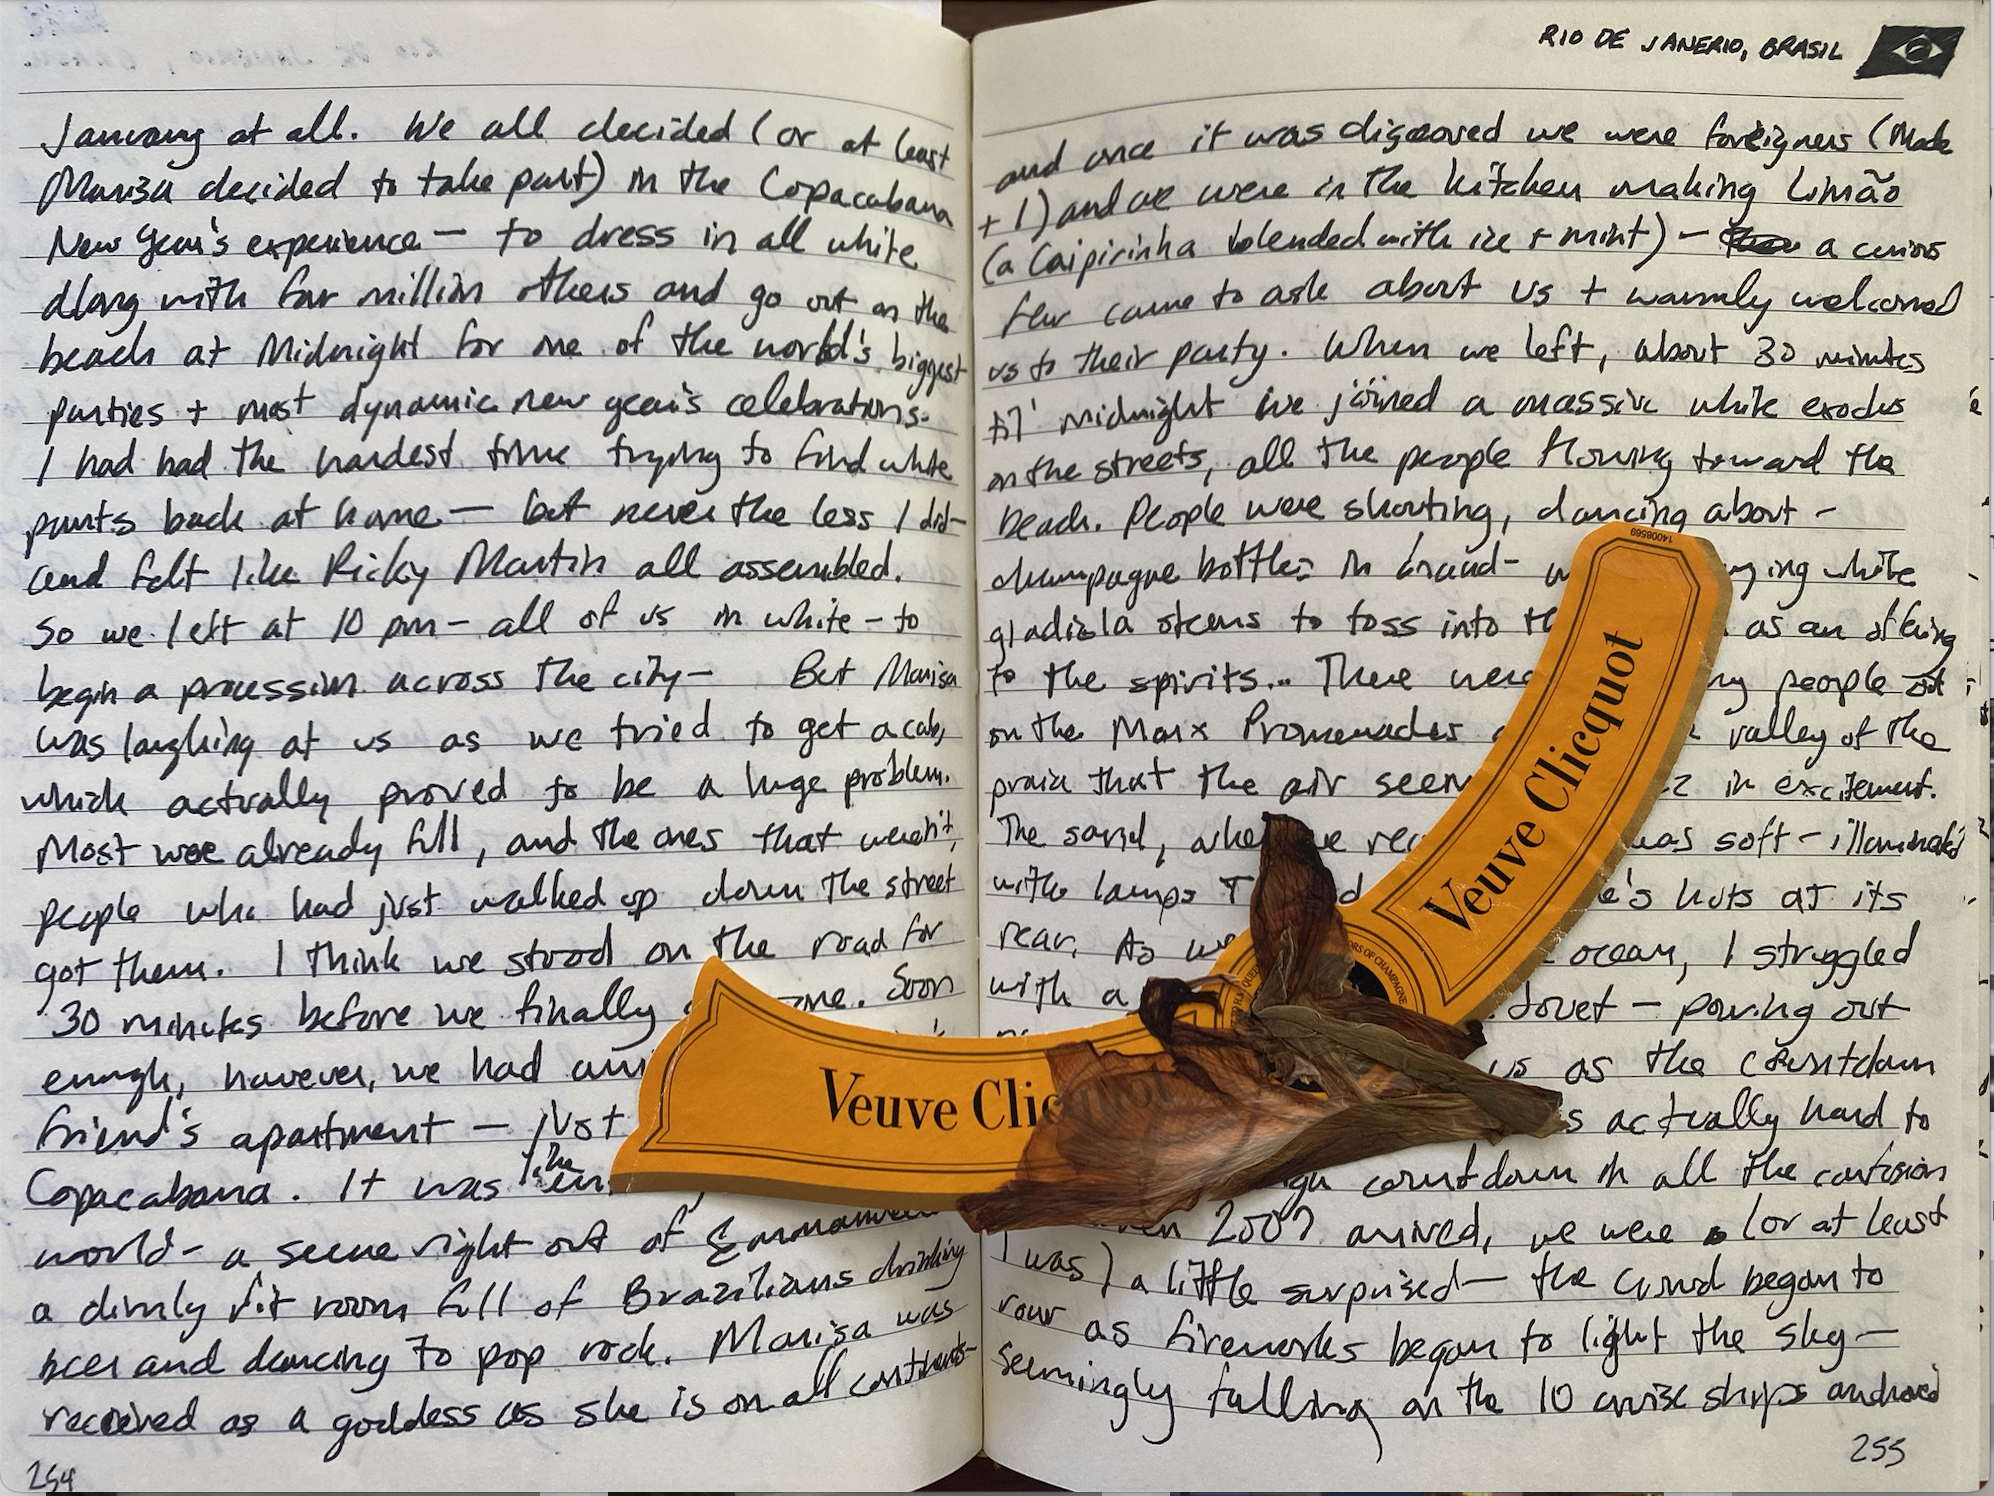 January at all. We all decided (or at least
Marisa decided to take part) in the Copacabana
New Year's experience — to dress in all white
along with four million others and go out on the
beach at Midnight for one of the world's biggest
parties + most dynamic new year's celebrations.
I had had the hardest time trying to find white
pants back at home — but never the less I did —
and felt like Ricky Martin all assembled.
So we left at 10 pm — all of us in white — to
begin a procession across the city — But Marisa
was laughing at us as we tried to get a cab,
which actually proved to be a huge problem.
Most were already full, and the ones that weren't,
people who had just walked up down the street
got them. I think we stood on the road for
30 minutes before we finally one. Soon
enough, however, we had
friend's apartment — just
Copacabana. It was like the
world — a scene right out of
a dimly lit room full of Brazilians drinking
beer and dancing to pop rock. Marisa was
received as a goddess as she is on all continents —
254
RIO DE JANERIO, BRASIL
and once it was discovered we were foreigners (Made
+ 1) and we were in the kitchen making Limão
(a Caipirinha blended with ice + mint) — a curious
few came to ask about us + warmly welcomed
us to their party. When we left, about 30 minutes
til' midnight we joined a massive white exodus
on the streets, all the people flowing toward the
beach. People were shouting, dancing about —
champagne bottles in hand — ing white
gladiola stems to toss into as an offering
to the spirits... There were people out
on the Marx Promenades valley of the
praia that the air in excitement.
The sand, was soft — illuminated
with lamps huts at its
rear. As we ocean, I struggled
with a — pouring out
us as the countdown
actually hard to
countdown in all the confusion
2007 arrived, we were (or at least
I was) a little surprised — the crowd began to
roar as fireworks began to light the sky —
seemingly falling on the 10 cruise ships anchored
255
14008569
Veuve Clicquot
Veuve Clicquot
OF CHAMPAGNE